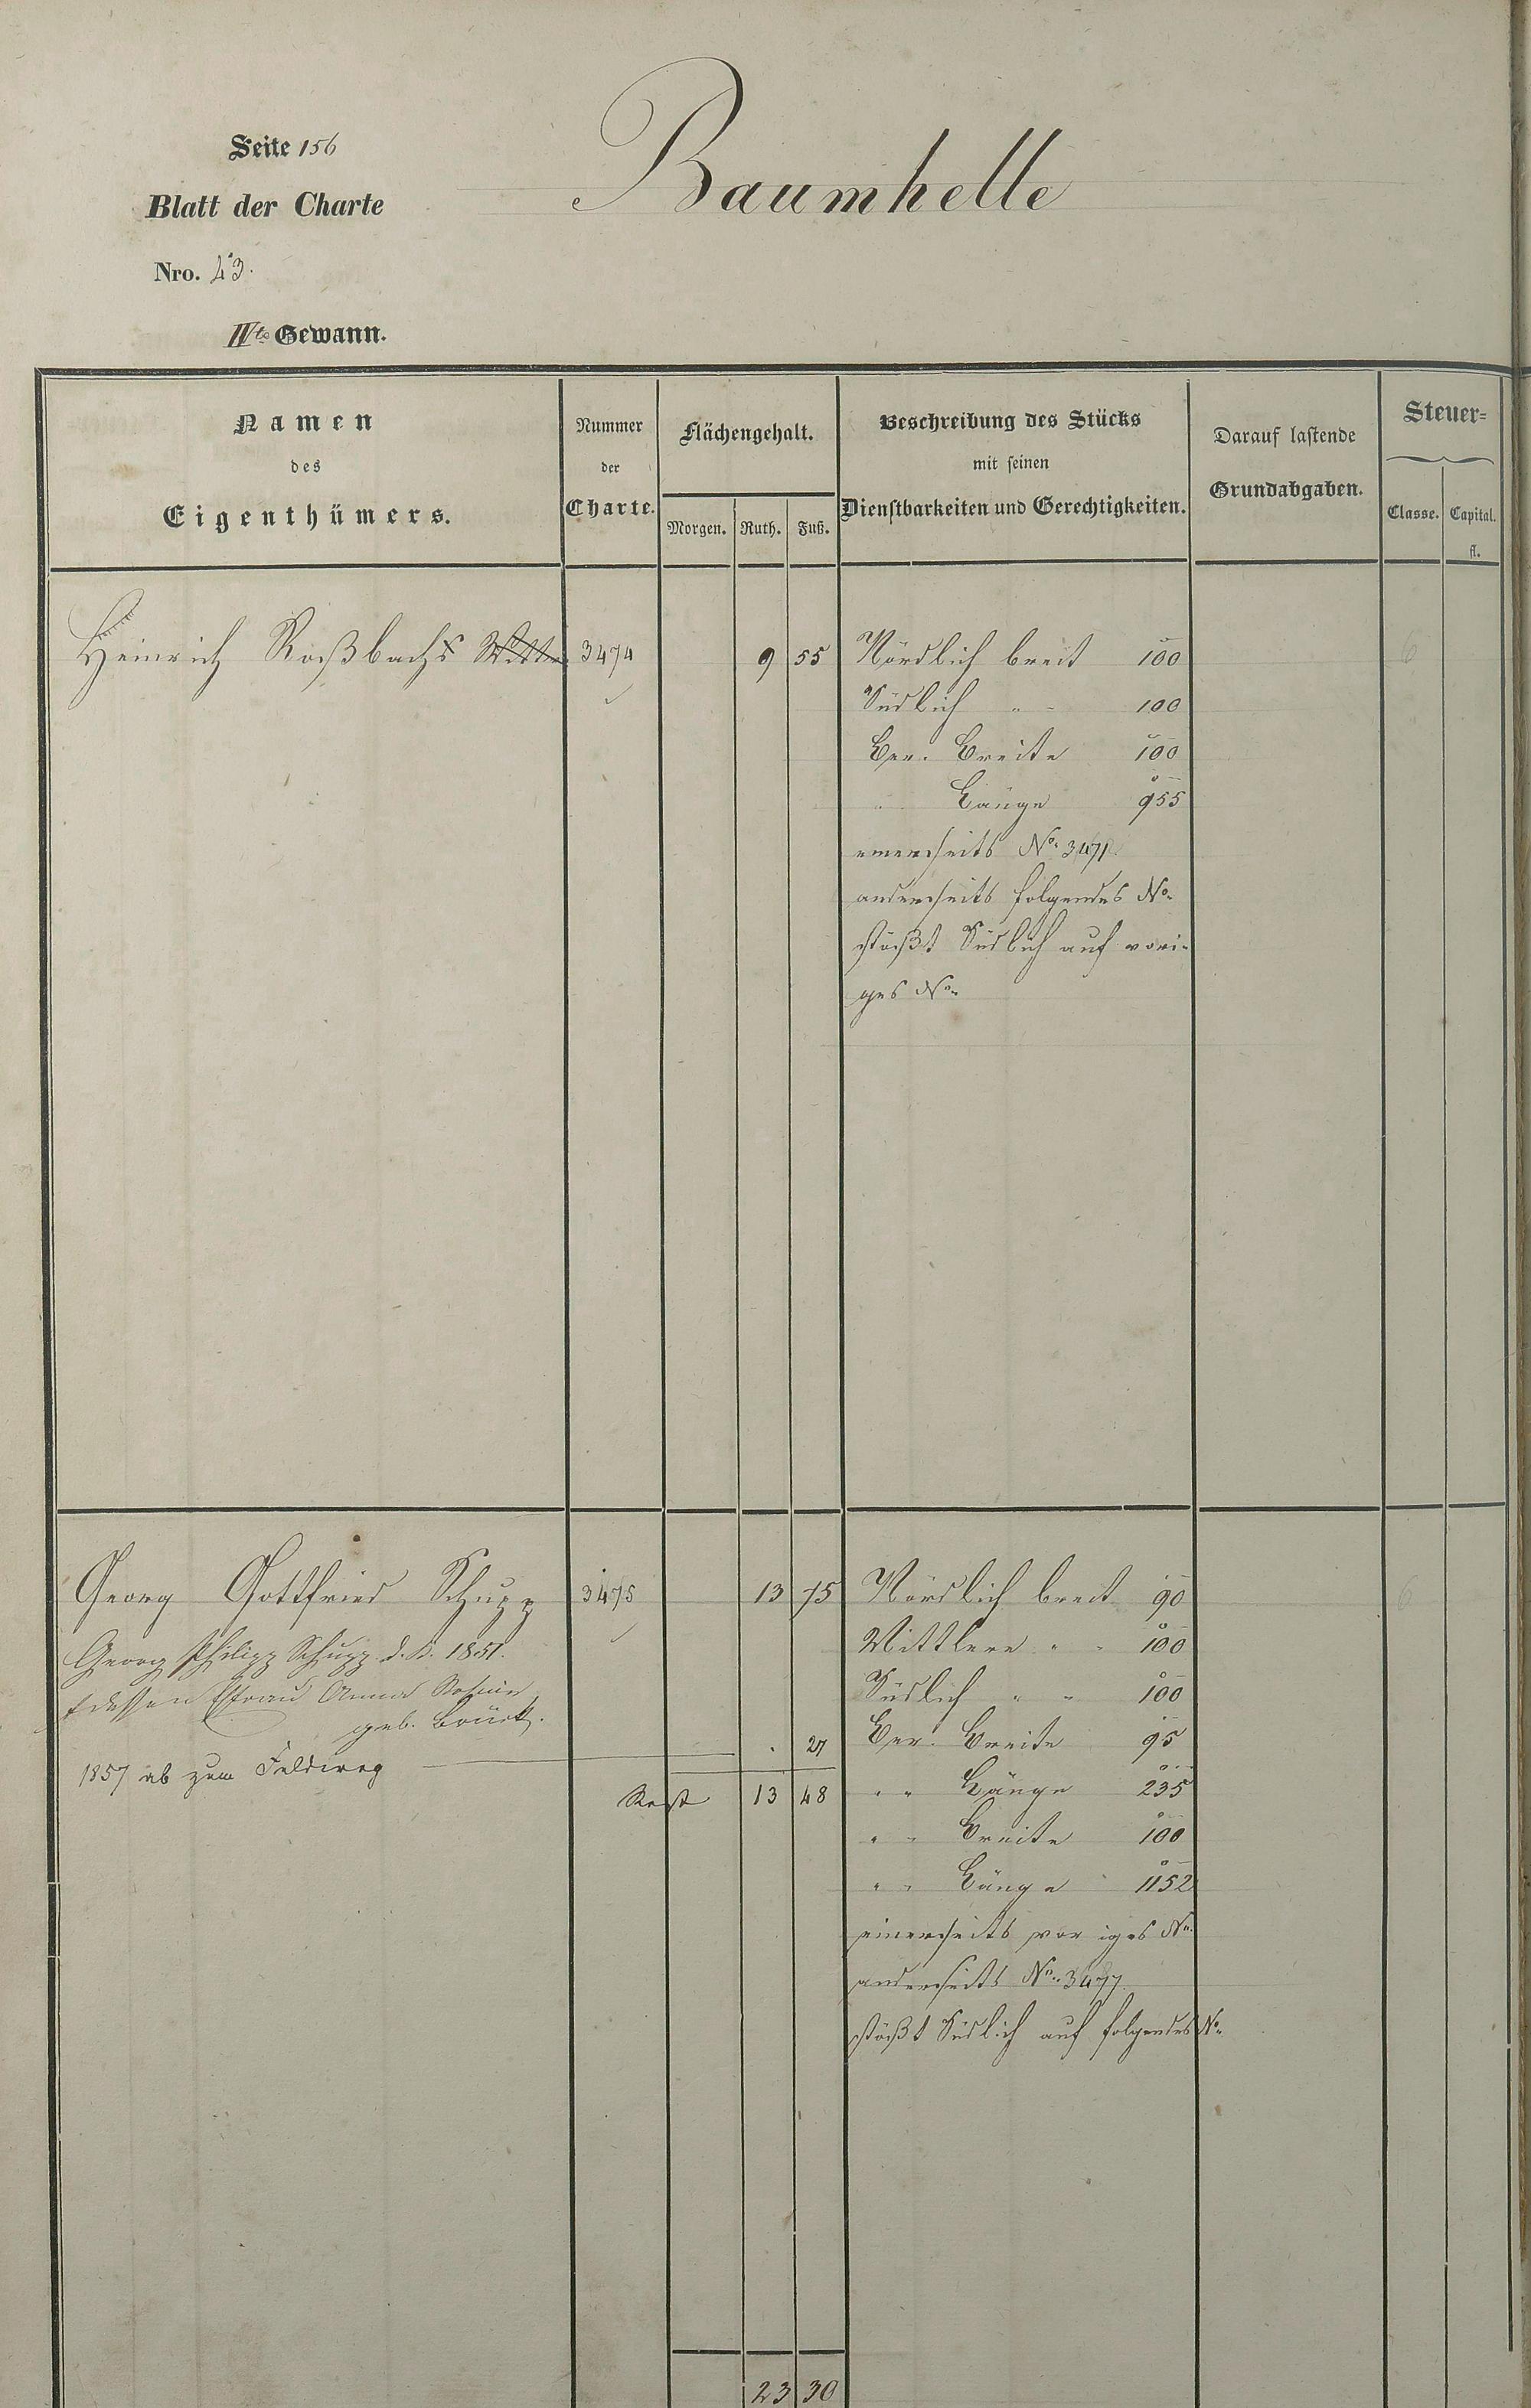 Seite 156
Baumhelle
Blatt der Charte
Nro. 43.
IVte Gewann.
Namen
des
Eigenthümers.
Nummer
der
Charte.
Flächengehalt.
Morgen. Ruth. Fuß.
Beschreibung des Stücks
mit seinen
Dienstbarkeiten und Gerechtigkeiten.
Darauf lastende
Grundabgaben.
Steuer=
Classe. Capital.
fl.
Heinrich Roßbachs Witte 3474 9 55 Nördlich breit 100 6
Südlich " - 100
Ber. Breite 100
" Länge 955
einerseits No. 3471
anderseits folgendes No.
stößt Südlich auf vori-
ges No.
Georg Gottfried Schupp 3475 13 75 Nördlich breit 90 6
Georg Philipp Schupp d. J. 1851. Mittlere " - 100
& dessen Ehfrau Anna Südlich " " 100
geb. Brück.
. 27 Ber. Breite 95
1857 ab zum Feldweg
Rest 13 48 " " Länge 235
" " Breite 100
" " Länge 1152
einerseits voriges No.
anderseits No. 3477
stößt Südlich auf folgendes No.
23 30